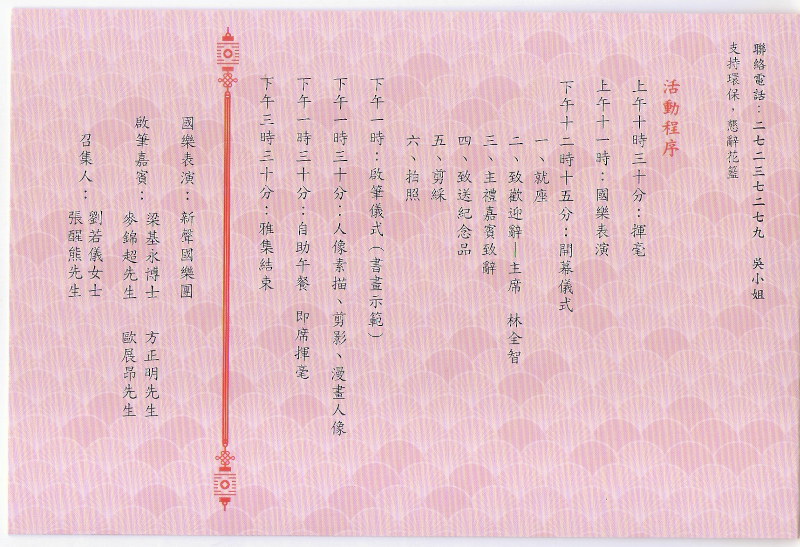 聯絡電話：二七二三七二七九　吳小姐
支持環保，懇辭花籃
活動程序
上午十時三十分：揮毫
上午十一時：國樂表演
下午十二時十五分：開幕儀式
一、就座
二、致歡迎辭—主席　林全智
三、主禮嘉賓致辭
四、致送紀念品
五、剪綵
六、拍照
下午一時：啟筆儀式（書畫示範）
下午一時三十分：人像素描、剪影、漫畫人像
下午一時三十分：自助午餐　即席揮毫
下午三時三十分：雅集結束
國樂表演：新聲國樂團
啟筆嘉賓：梁基永博士　方正明先生
麥錦超先生　歐展昂先生
召集人：劉若儀女士
張醒熊先生